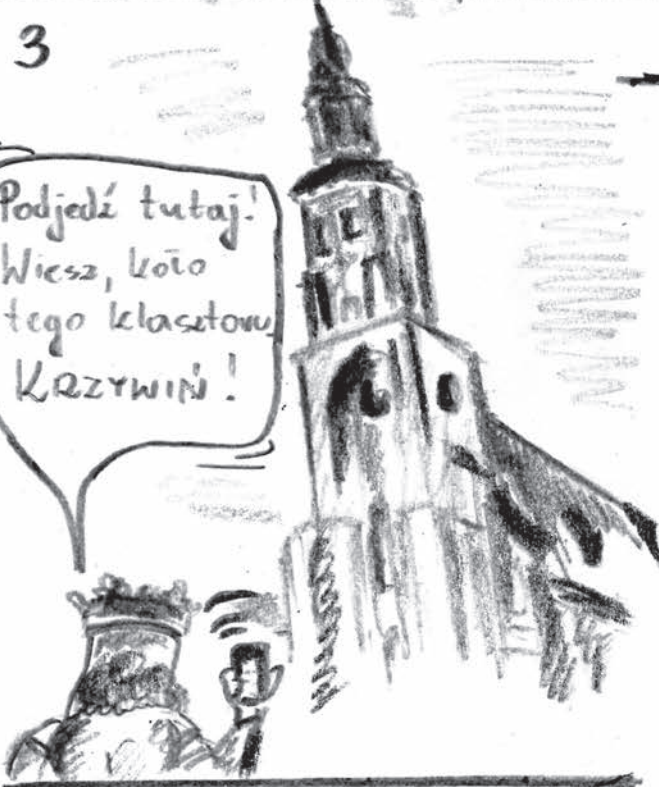 3
Podjedź tutaj!
Wiesz, koło
tego klasztoru,
KRZYWIŃ!